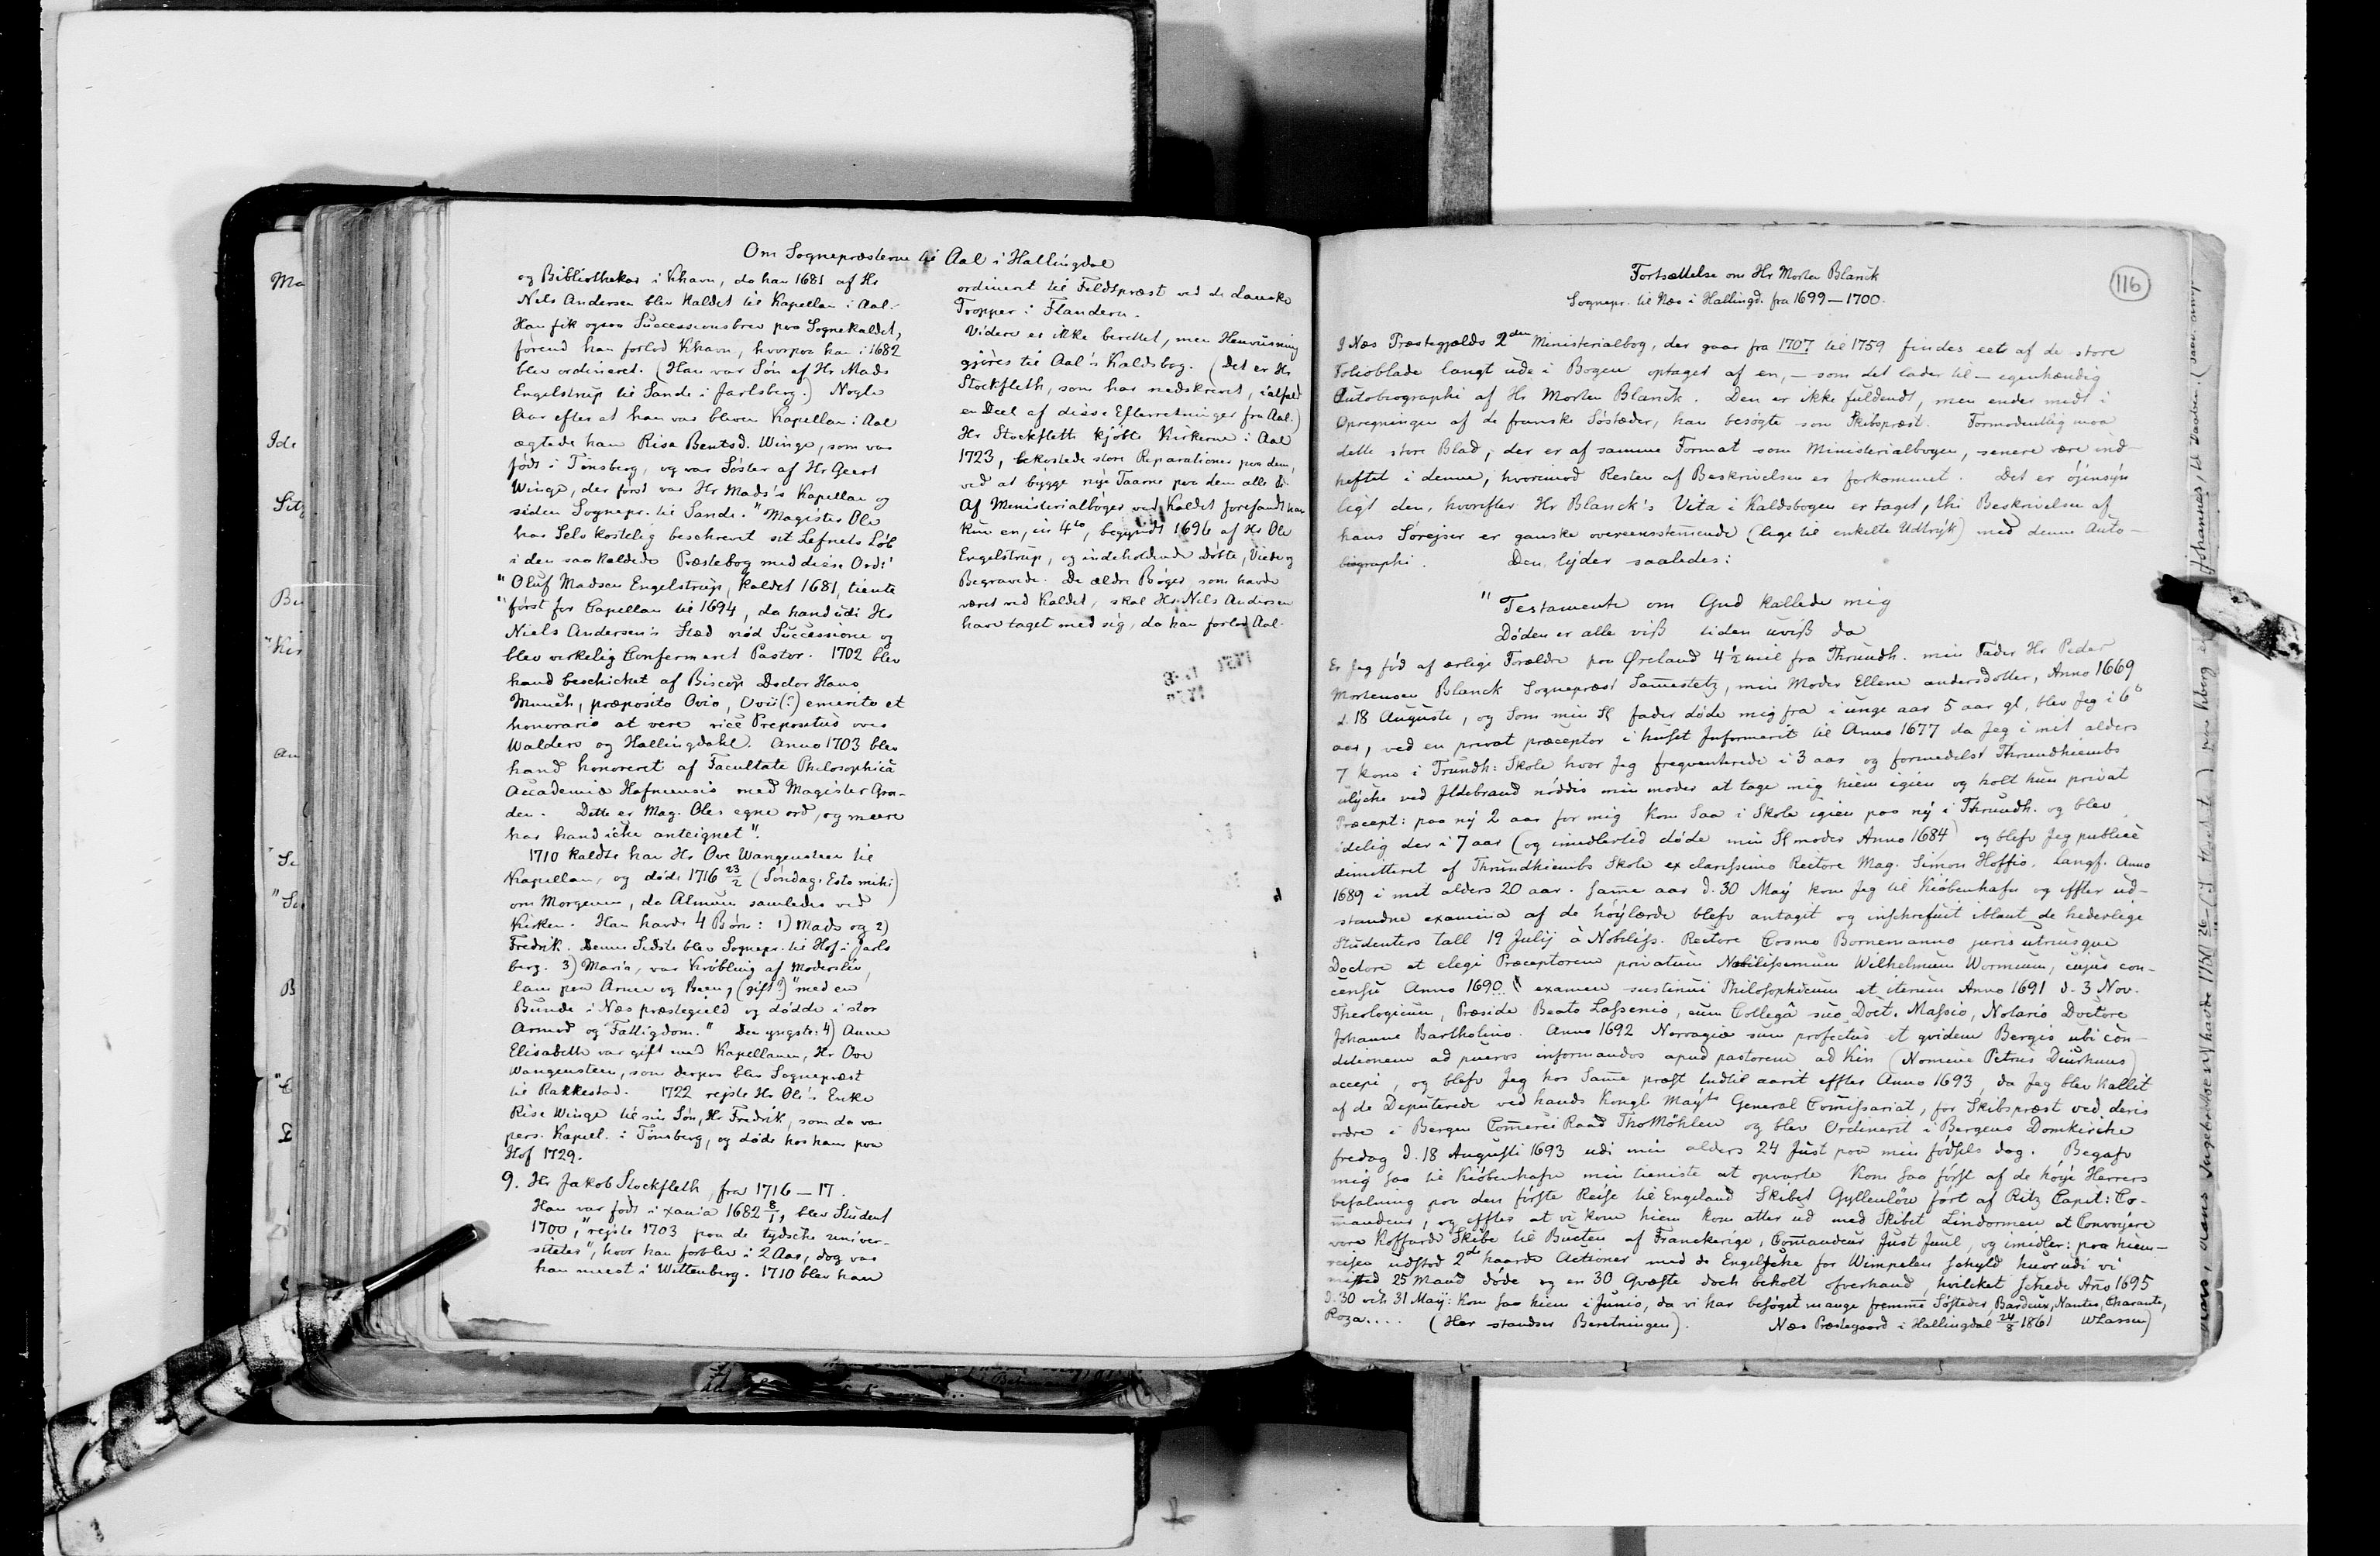 Om Sognepræsterne til Aal i Hallingdal
og Bibliothekar i Khavn, da han 1681 af Hr
Nels Andersen blev kaldet til Kapellan i Aal.
Han fik ogsaa Successionsbrev paa Sognekaldet,
førend han forlod Khavn, hvorpaa han i 1682
blev ordineret. (Han var Søn af Hr Mads
Engelstrup til Sande i Jarlsberg.) Nogle
Aar efter at han var bleven Kapellan i Aal
ægtede han Risa Bentsd. Winge, som var
født i Tønsberg, og var Søster af Hr Geert
Winge, der først var Hr Mads's Kapellan og
siden Sognepr. til Sande. "Magister Ole
har Selv kostelig beschrevet sit Lefnets Løb
i den saa kaldede Præstebog med disse Ord:
"Oluf Madsen Engelstrup, kaldet 1681, tiente
"først for Capellan til 1694, da hand udi Hr
Niels Andersen's Stæd nød Successione og
blev virkelig Confermeret Pastor. 1702 blev
hand beschicket af Biscop Doctor Hans
Munch, præposito Ovio, Ovii(:) emerito et
honorario at vere vice Prepositus over
Walders og Hallingdahl. Anno 1703 blev
hand honoreret af Facultate Philosophica
Accademiæ Hafniensis med Magister Gra-
den. Dette er Mag. Oles egne ord, og meere
har hand icke anteignet".
1710 kaldte han Hr Ove Wangensteen til
Kapellan, og døde 1716 23/2 (Søndag Esto mihi)
om Morgenen, da Almuen samledes ved
Kirken. Han havde 4 Børn: 1) Mads og 2)
Fredrik. Denne Sidste blev Sognepr. til Hof i Jarls
berg. 3) Maria, var Krøbling af Moderslív,
lam paa Arme og Been, (gift?) "med en
Bunde i Næs præstegield og dødde i stor
Armod og Fattigdom." Den yngste: 4) Anne
Elisabeth var gift med Kapellanen, Hr Ove
Wangensteen, som derpaa blev Sognepræst
til Rakkestad. 1722 rejste Hr Ole's Enke
Risa Winge til sin Søn, Hr Fredrik, som da var
pers. Kapell. i Tønsberg, og døde hos ham paa
Hof 1729.
9. Hr Jakob Stockfleth, fra 1716 – 17 .
Han var født i Xania 1682 8/1, blev Student
1700, "rejste 1703 paa de tydsche univer-
siteter", hvor han forblev i 2 Aar, dog var
han meest i Wittenberg. 1710 blev han
ordineret til Feldtpræst ved de danske
Tropper i Flandern.
Videre er ikke berettet, men Henviisning
gjøres til Aal's Kaldsbog. (Det er Hr
Stockfleth, som har nedskrevet, ialfald
en Deel af disse Efterretninger fra Aal.)
Hr Stockfleth kjøbte Kirkerne i Aal
1723, bekostede store Reparationer paa dem,
ved at bygge nye Taarne paa dem alle
Af Ministerialbøger ved Kaldet forefandt han
kun en, in 4to, begyndt 1696 af Hr Ole
Engelstrup, og indeholdende Døbte, Viede og
Begravede. De ældre Bøger, som havde
været ved Kaldet, skal Hr Nels Andersen
have taget med sig, da han forlod Aal.
116
Fortsættelse om Hr Morten Blanck
Sognepr. til Næs i Hallingd. fra 1699 – 1700.
I Næs Præstegjælds 2den Ministerialbog, der gaar fra 1707 til 1759 findes eet af de store
Folioblade langt ude i Bogen optaget af en, – som det lader til – egenhændig
Autobiographi af Hr Morten Blanck. Den er ikke fuldendt, men ender midt i
Opregningen af de franske Søstæder, han besøgte som Skibspræst. Formodentlig maa
dette store Blad, der er af samme Format som Ministerialbogen, senere være ind-
heftet i denne, hvorimod Resten af Beskrivelsen er forkommet. Det er øjensyn
ligt den, hvorefter Hr Blanck's Vita i Kaldsbogen er taget, thi Beskrivelsen af
hans Sørejser er ganske overeensstemmende (lige til enkelte Udtryk) med denne Auto-
biographi. Den lyder saaledes:
"Testamente om Gud kallede mig
Døden er alle viß tiden uviß da
Er Jeg fød af ærlige Forældre paa Øreland 4 1/2 mil fra Thrundh. min Fader Hr Peder
Mortensen Blanck Sognepræst Sammestetz, min Moder Ellene andersdotter, Anno 1669
d. 18 Auguste, og Som min Sl fader døde mig fra i unge aar 5 aar gl, blev Jeg i 6te
aar, ved en privat præceptor i huset Informerit til Anno 1677 da Jeg i mit alders
7 kom i Trundh: Skole hvor Jeg freqventerede i 3 aar og formedelst Thrundhiembs
ulyche ved Ildebrand nøddis min moder at tage mig hiem igien og holt hun privat
Præcept: paa ny 2 aar for mig Kom Saa i Skole igien paa ny i Thrundh. og blev
idelig der i 7 aar (og imidlertid døde min Sl moder Anno 1684) og blefv Jeg publicè
dimitteret af Thrundhiembs Skole ex clarissimo Rectore Mag. Simon Hoffio. Langf. Anno
1689 i mit alders 20 aar. Same aar d. 30 May kom Jeg til Kiøbenhafn og effter ud-
standne examina af de høylærde blefv antagit og inschrefuit iblant de hederlige
Studenters tall 19 Julij à Nobiliss. Rectore Cosmo Bornemanno juris utriusque
Doctore et elegi Præceptorem privatum Nobilissimum Wilhelmum Wormium, cujus con-
censu Anno 1690 examen sustinui Philosophicum et iterum Anno 1691 d. 3 Nov.
Theologicum, Præside Beato Lassenio, cum Collegâ suo Doct. Massio, Notario Doctore
Johanne Bartholino. Anno 1692 Norragiæ sum profectus et qvidem Bergis ubi con-
ditionem ad pueros informandos apud pastorem ad Kin (Nomine Petrus Diurhuus)
accepi, og blefv Jeg hos Same præst Indtil aarit effter Anno 1693, da Jeg blev kallit
af de Deputerede ved hands Kongl. Mayts General Comissariat, for Skibspræst ved deris
ordre i Bergen Comerci Raad Tho Möhlen og blev Ordinerit i Bergens Domkirche
fredag d. 18 Augusti 1693 udi min alders 24 Just paa min fødsels dag. Begaf
mig saa til Kiøbenhafn min tieniste at opvarte Kom saa først af de høye Herrers
befalning paa den første Reise til Engeland Skibet Gyllenløw ført af Ritz Capit: Co-
mandeur, og effter at vi kom hiem kom atter ud med Skibet Lindormen at Convoyere
vore Koffardi Skibe til Bucten af Franckerige, Comandeur Just Juul, og imidler: paa hiem-
reisen udstod 2de haarde Actioner med de Engelsche for Wimpelen schyld huor udi vi
misted 25 Mand døde og en 30 Qvæste doch beholt ofverhand, hvilcket schede Ano 1695
d. 30 och 31 Maij: Kom saa hiem i Junio, da vi har besøget mange fremme Søsteder, Bardeux, Nantes, Charante,
Roza.... (Her standser Beretningen). Næs Præstegaard i Hallingdal 24/8 1861 W Lassen)